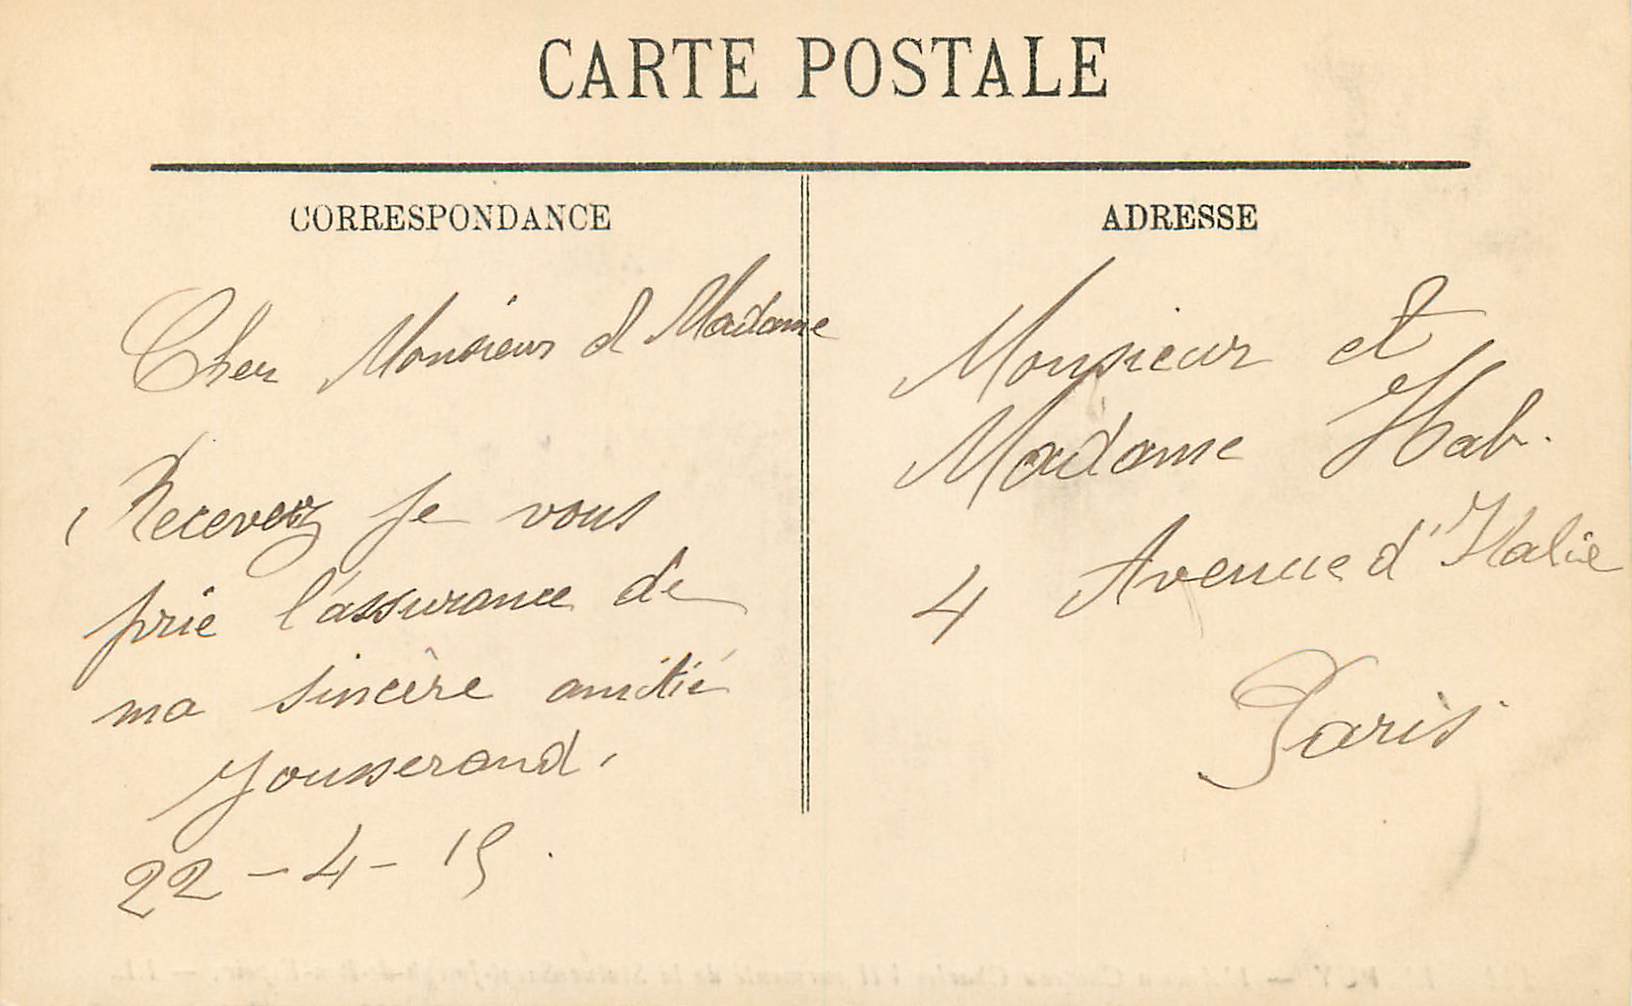 CARTE POSTALE
CORRESPONDANCE
Cher Monsieur et Madame
Recevez je vous
prie l'assurance de
ma sincère amitié
Jousserand.
22-4-15.
ADRESSE
Monsieur et
Madame Hab.
4 Avenue d'Italie
Paris